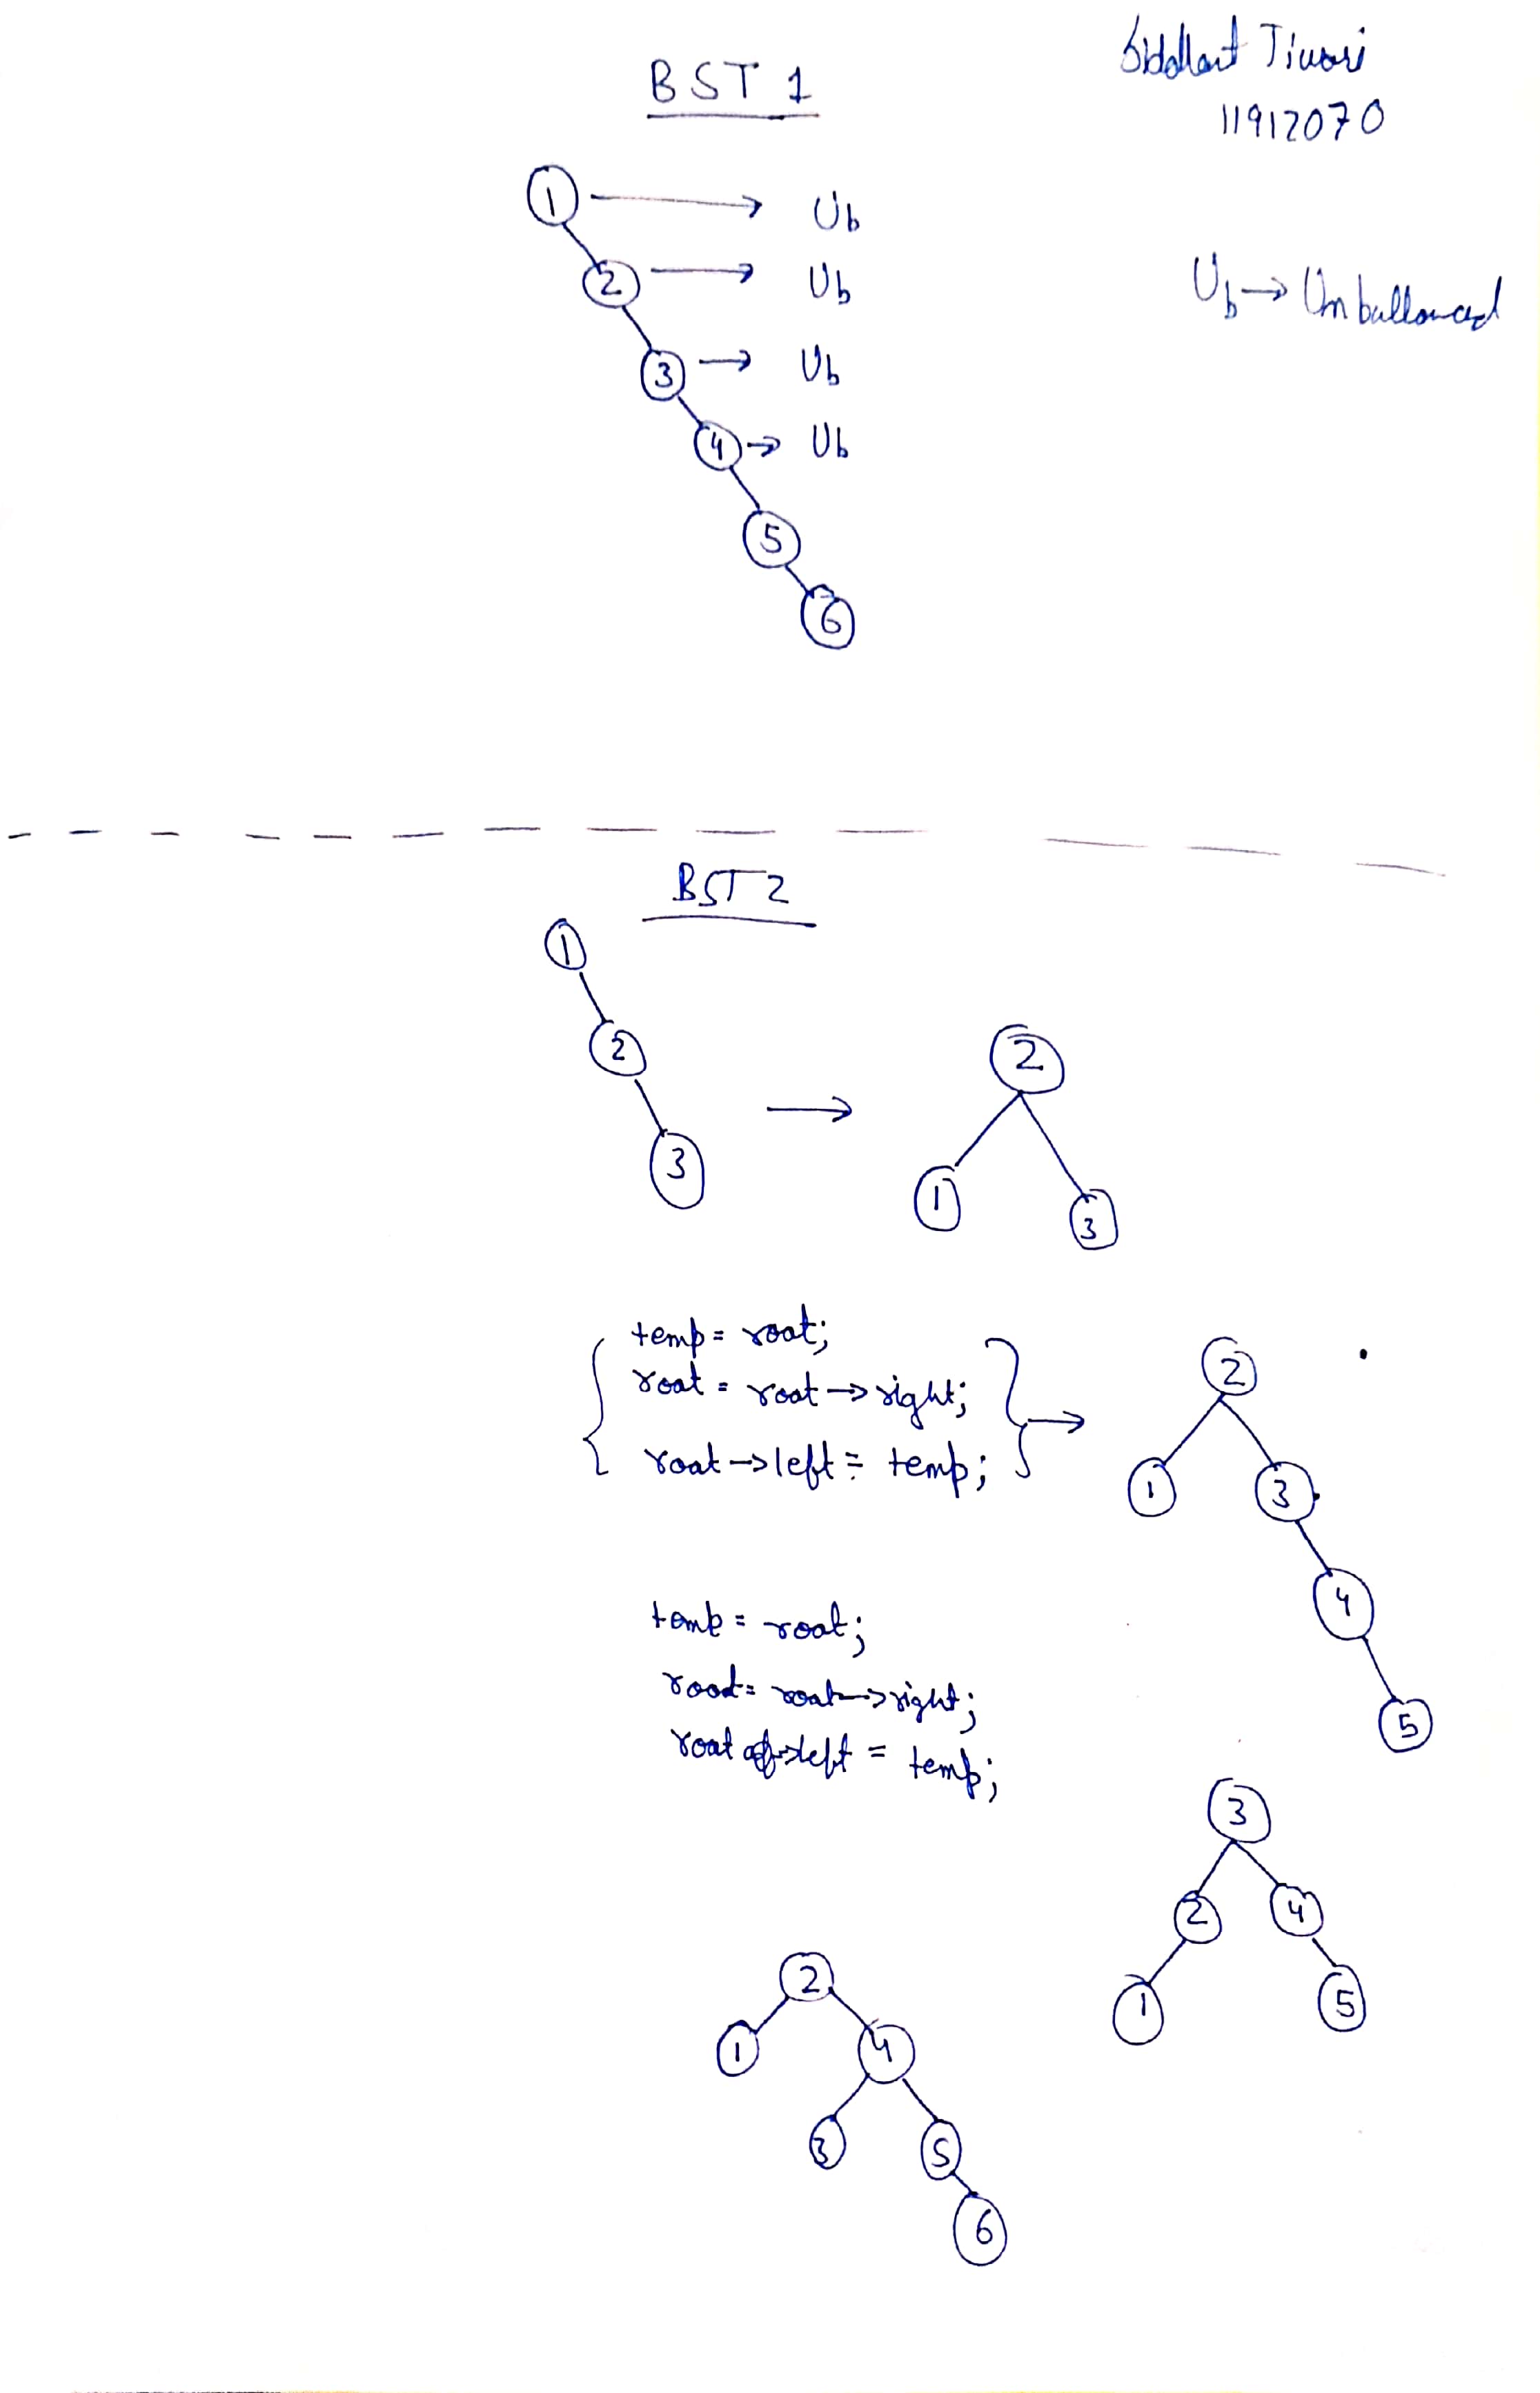 BST 1
Siddhant Tiwari
11912070
1 → Ub
2 → Ub
Ub → Unballanced
3 → Ub
4 → Ub
5
6
BST 2
1
2
3
→
2
1
3
temp = root;
root = root → right;
root → left = temp;
→
2
1
3
4
5
temp = root;
root = root → right;
root → left = temp;
3
2
4
1
5
2
1
4
3
5
6